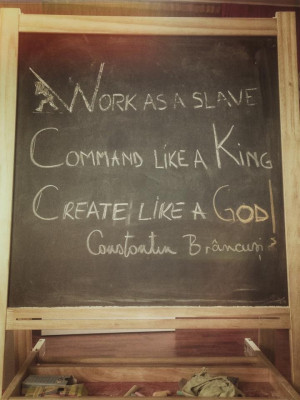 WORK AS A SLAVE
COMMAND LIKE A KING
CREATE LIKE A GOD!
Constantin Brâncuși